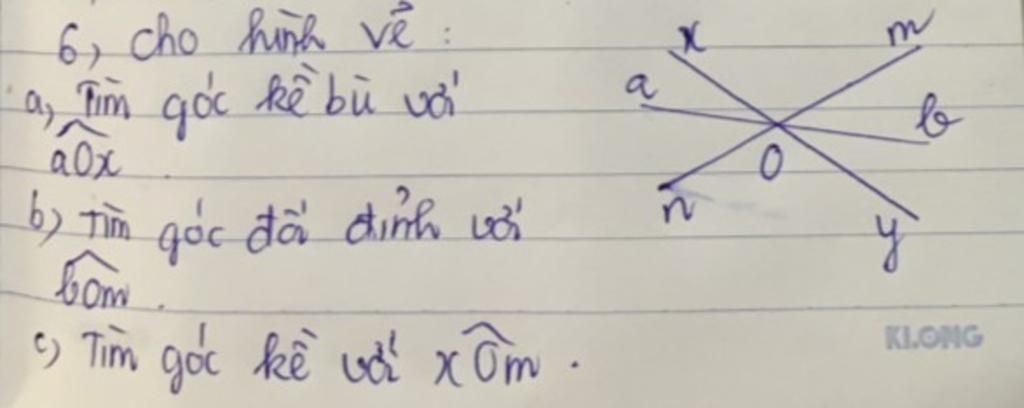 6, cho hình vẽ :
a, Tìm góc kề bù với
aOx .
b) Tìm góc đối đỉnh với
bOm .
c) Tìm góc kề với xOm .
x
m
a
b
O
n
y
KLONG